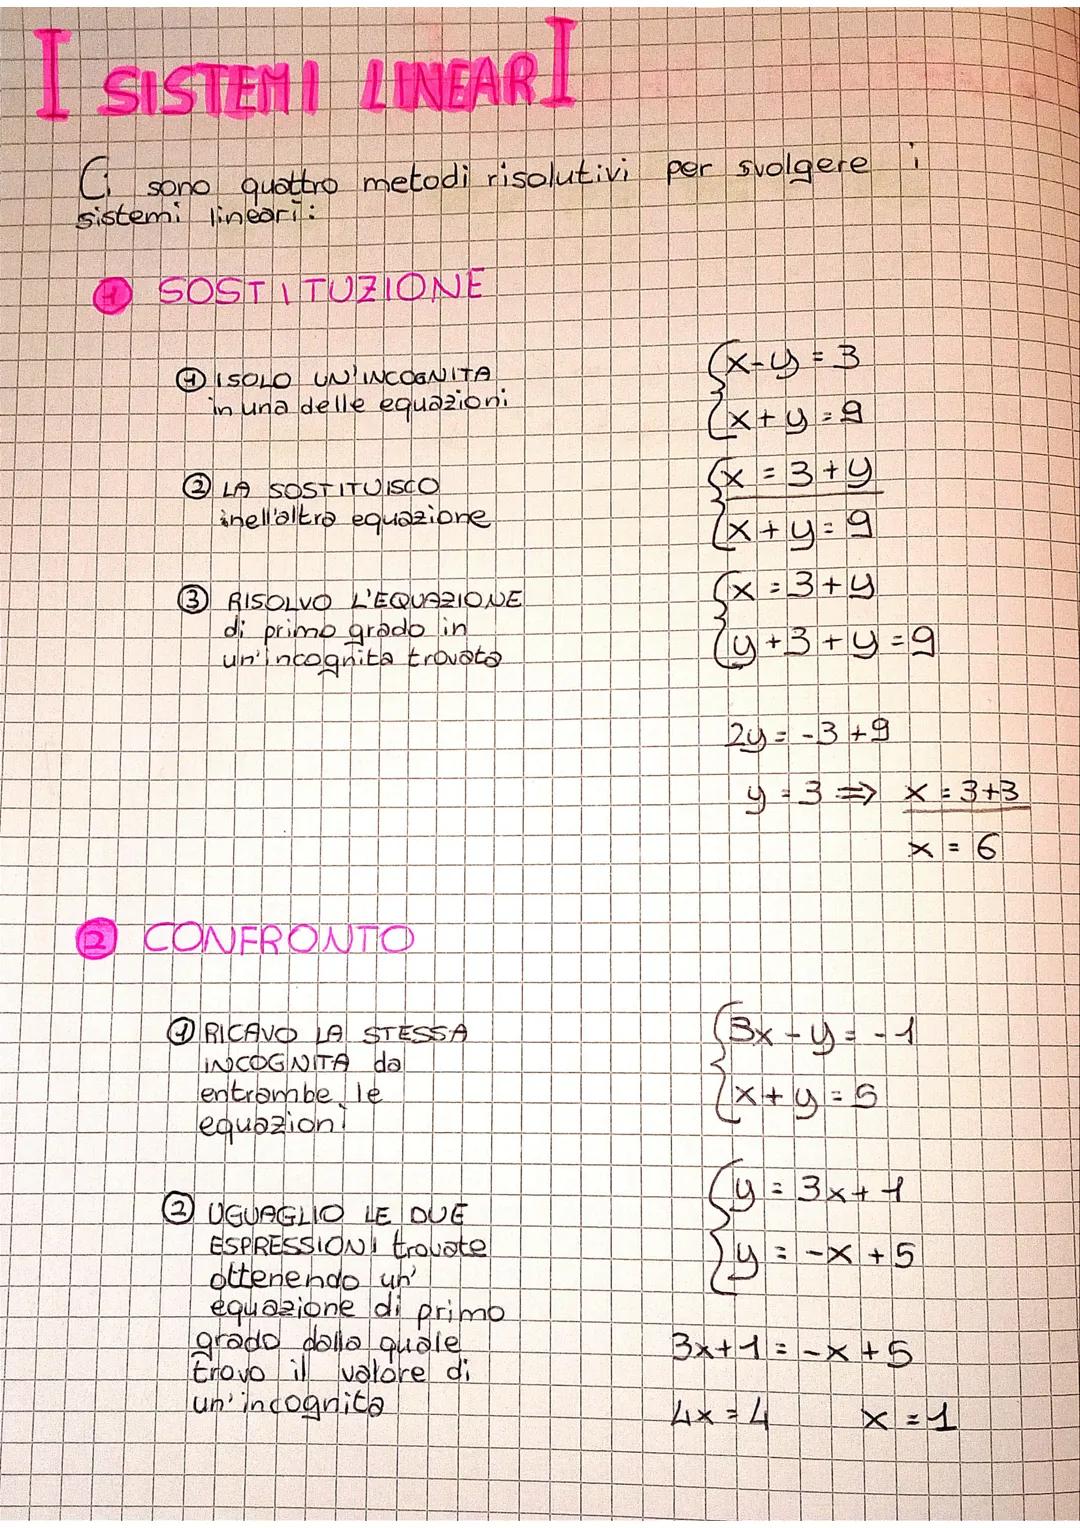 I SISTEMI LINEARI
Ci sono quattro metodi risolutivi per svolgere i
sistemi lineari:
1 SOSTITUZIONE
1 ISOLO UN'INCOGNITA
in una delle equazioni
x-y = 3
x+y = 9
2 LA SOSTITUISCO
nell'altra equazione
x = 3+y
x+y = 9
3 RISOLVO L'EQUAZIONE
di primo grado in
un'incognita trovata
x = 3+y
y+3+y = 9
2y = -3+9
y = 3 => x = 3+3
x = 6
2 CONFRONTO
1 RICAVO LA STESSA
INCOGNITA da
entrambe le
equazioni
3x-y = -1
x+y = 5
2 UGUAGLIO LE DUE
ESPRESSIONI trovate
ottenendo un'
equazione di primo
grado dalla quale
trovo il valore di
un'incognita
y = 3x+1
y = -x+5
3x+1 = -x+5
4x = 4 x = 1